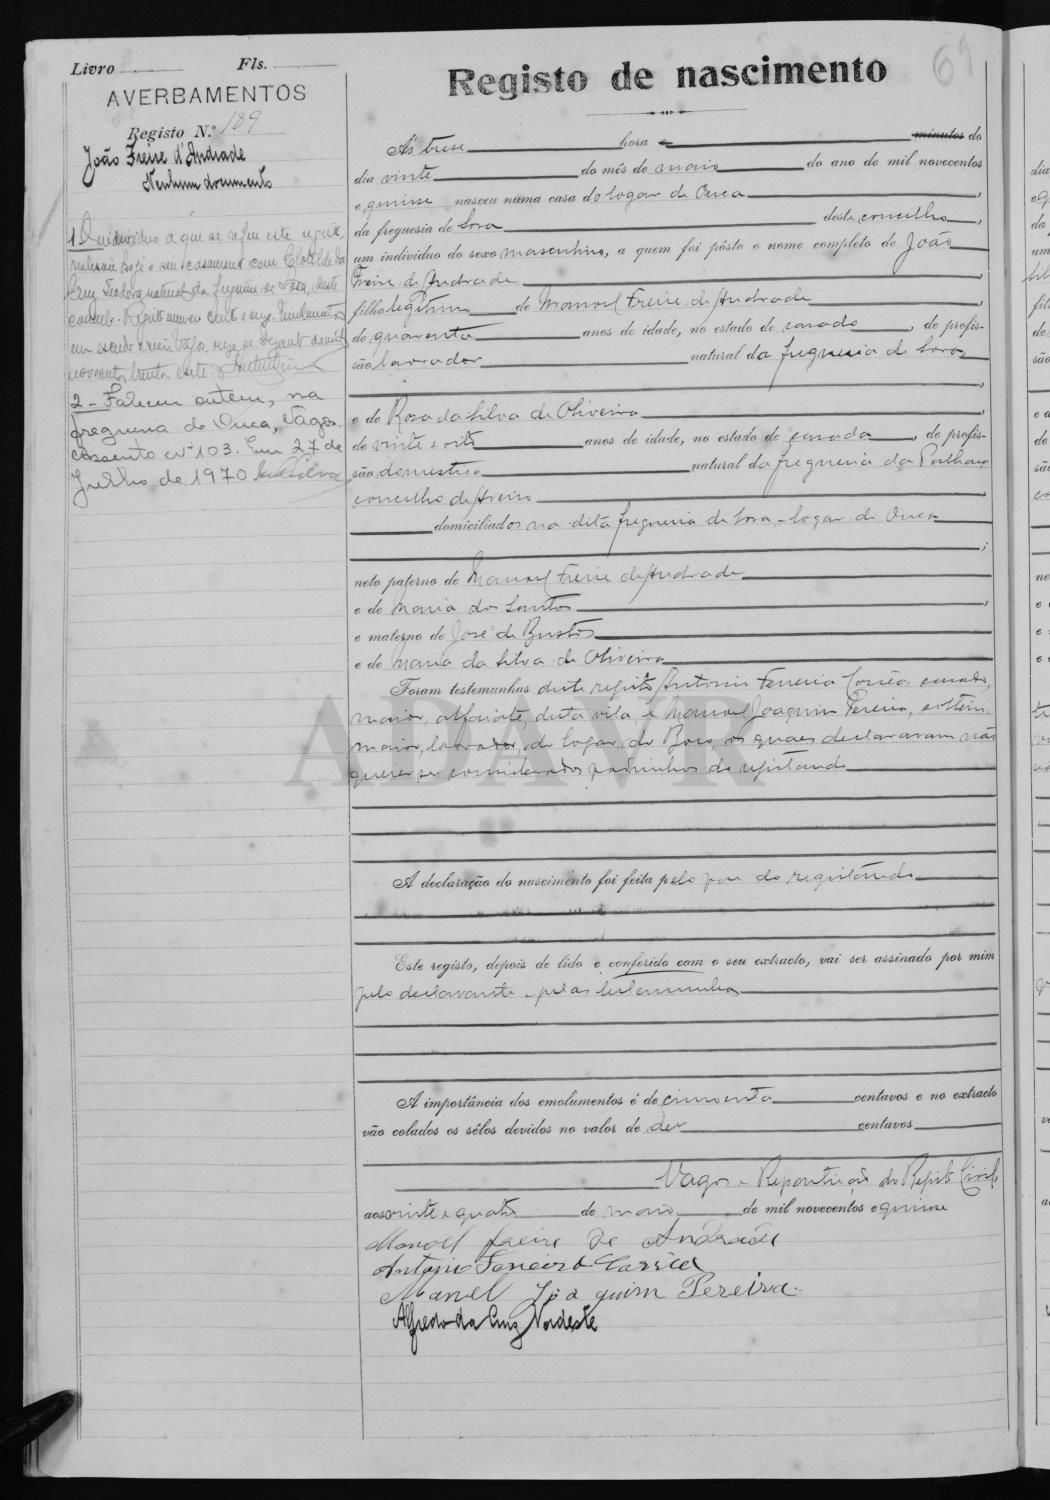 Livro Fls.
AVERBAMENTOS
Registo N.º 189
João Freire d'Andrade
Nenhum documento
1 O individuo a que se refere este registo
realisou hoje o seu casamento com Clotilde da
Cruz Teodora natural da freguesia de Sosa, deste
concelho. Registo numero cento e onze. Emolumentos
um escudo e Vagos, onze de de mil
novecentos trinta e
2 - Faleceu ontem, na
freguesia de Ouca, Vagos
assento nº 103. Em 27 de
Julho de 1970
69
Registo de nascimento
Ás trese hora e minutos do
dia vinte do mês de maio do ano de mil novecentos
e quinse nasceu numa casa do logar de Ouca,
da freguesia de Sosa deste concelho,
um individuo do sexo masculino, a quem foi pôsto o nome completo de João
Freire de Andrade,
filho legitimo de Manoel Freire de Andrade,
de quarenta anos de idade, no estado de casado, de profis-
são lavrador natural da freguesia de Sosa,
e de Rosa da Silva de Oliveira,
de vinte e oito anos de idade, no estado de casada, de profis-
são domestica natural da freguesia da Palhaça
concelho de Aveiro,
domiciliados na dita freguesia de Sosa - logar de Ouca;
neto paterno de Manoel Freire de Andrade
e de Maria dos Santos,
e materno de José de Bustos
e de Maria da Silva de Oliveira
Foram testemunhas deste registo Antonio Ferreira Corrêa, casado,
maior, alfaiate, desta vila, e Manoel Joaquim Pereira, solteiro,
maior, lavrador, do logar de os quaes declararam não
querer ser considerados padrinhos do registando
ADAVR
A declaração do nascimento foi feita pelo pae do registando
Este registo, depois de lido e conferido com o seu extracto, vai ser assinado por mim
pelo declarante e pelas testemunhas
A importância dos emolumentos é de cincoenta centavos e no extracto
vão colados os sêlos devidos no valor de dez centavos
Vagos e Repartição do Registo Civil,
aos vinte e quatro de maio de mil novecentos e quinse
Manoel freire de Andrade
Antonio Ferreira Corrêa
Manel Joaquim Pereira
Alfredo da Cruz Nordeste